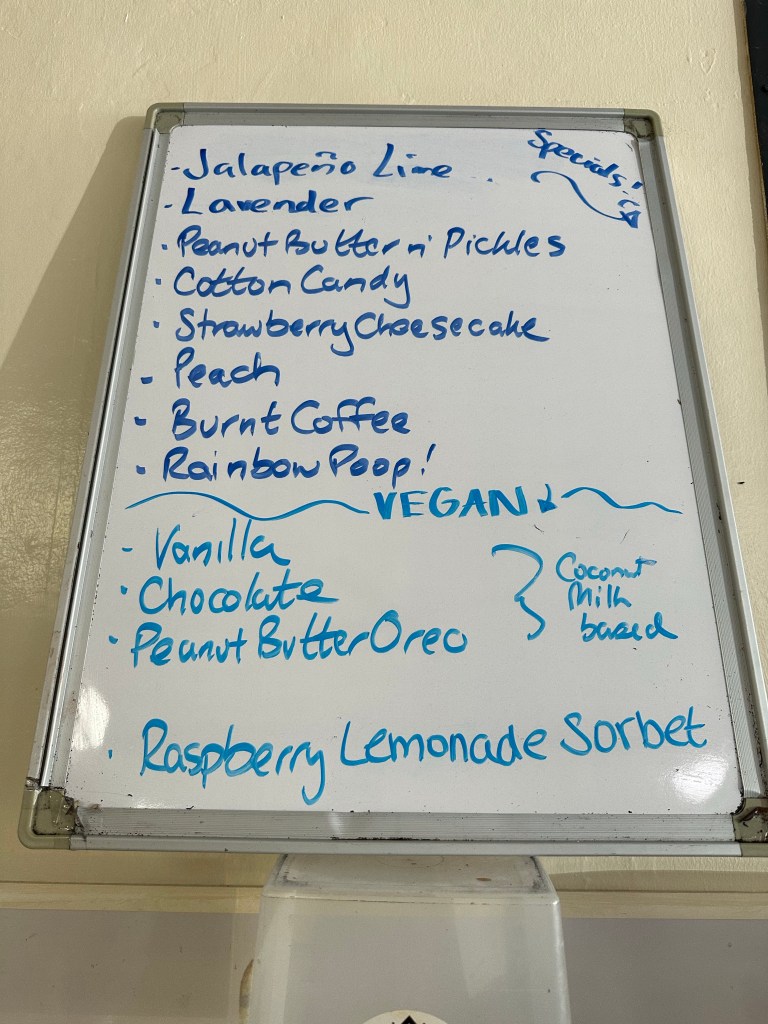 Specials!
- Jalapeño Lime
- Lavender
· Peanut Butter n' Pickles
· Cotton Candy
· Strawberry Cheesecake
- Peach
- Burnt Coffee
- Rainbow Poop!
VEGAN
- Vanilla
· Chocolate
· Peanut Butter Oreo
Coconut
Milk
based
· Raspberry Lemonade Sorbet